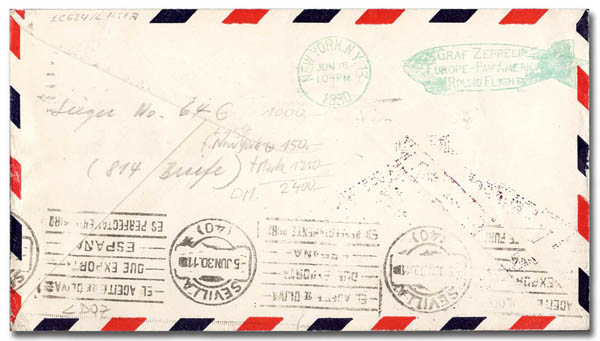 NEW YORK, N.Y.
JUN 16
10-PM
1930
GRAF ZEPPELIN
EUROPE-PAN AMERICA
ROUND FLIGHT
Sieger No. 64 G 1000.-
f. New York 150.-
(814 Briefe) + Marke 1250
DM. 2400.-
EL ACEITE DE OLIVA
QUE EXPORTA
ESPAÑA
ES PERFECTAMENTE PURO
SEVILLA
5 JUN 30. 11
(40)
EL ACEITE DE OLIVA
QUE EXPORTA
ESPAÑA
ES PERFECTAMENTE PURO
SEVILLA
(40)
ACEITE DE OLIVA
EXPORT